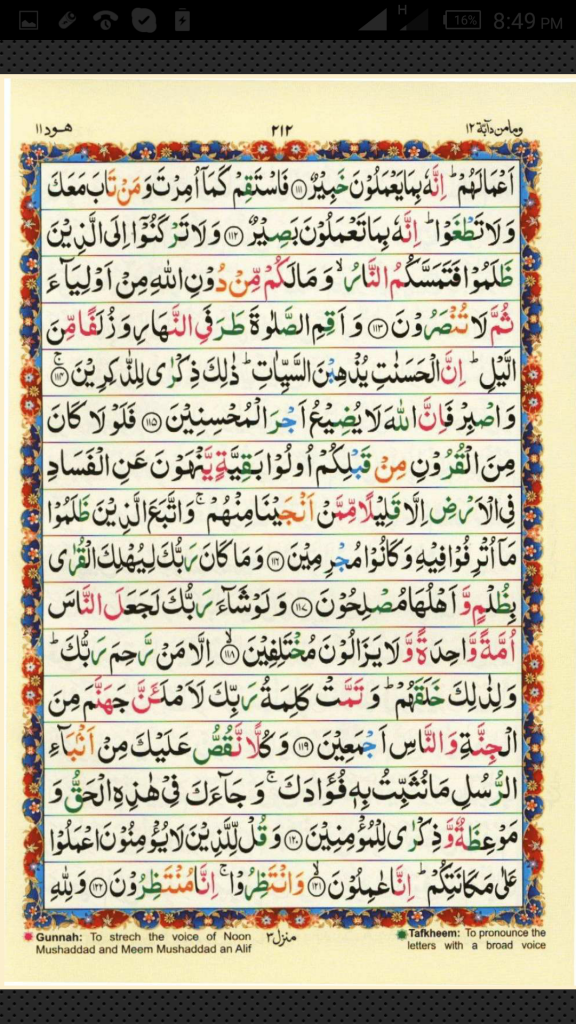 H 16% 8:49 PM
وما من دآبة ١٢ ٢١٢ هود ١١
اَعْمَالَهُمْ ؕ اِنَّهٗ بِمَا يَعْمَلُوْنَ خَبِيْرٌ ﴿۱۱۱﴾ فَاسْتَقِمْ كَمَاۤ اُمِرْتَ وَمَنْ تَابَ مَعَكَ
وَلَا تَطْغَوْا ؕ اِنَّهٗ بِمَا تَعْمَلُوْنَ بَصِيْرٌ ﴿۱۱۲﴾ وَلَا تَرْكَنُوْۤا اِلَى الَّذِيْنَ
ظَلَمُوْا فَتَمَسَّكُمُ النَّارُ ۙ وَمَا لَكُمْ مِّنْ دُوْنِ اللّٰهِ مِنْ اَوْلِيَآءَ
ثُمَّ لَا تُنْصَرُوْنَ ﴿۱۱۳﴾ وَاَقِمِ الصَّلٰوةَ طَرَفَيِ النَّهَارِ وَزُلَفًا مِّنَ
الَّيْلِ ؕ اِنَّ الْحَسَنٰتِ يُذْهِبْنَ السَّيِّاٰتِ ؕ ذٰلِكَ ذِكْرٰى لِلذّٰكِرِيْنَ ۚ﴿۱۱۴﴾
وَاصْبِرْ فَاِنَّ اللّٰهَ لَا يُضِيْعُ اَجْرَ الْمُحْسِنِيْنَ ﴿۱۱۵﴾ فَلَوْ لَا كَانَ
مِنَ الْقُرُوْنِ مِنْ قَبْلِكُمْ اُولُوْا بَقِيَّةٍ يَّنْهَوْنَ عَنِ الْفَسَادِ
فِى الْاَرْضِ اِلَّا قَلِيْلًا مِّمَّنْ اَنْجَيْنَا مِنْهُمْ ۚ وَاتَّبَعَ الَّذِيْنَ ظَلَمُوْا
مَاۤ اُتْرِفُوْا فِيْهِ وَكَانُوْا مُجْرِمِيْنَ ﴿۱۱۶﴾ وَمَا كَانَ رَبُّكَ لِيُهْلِكَ الْقُرٰى
بِظُلْمٍ وَّاَهْلُهَا مُصْلِحُوْنَ ﴿۱۱۷﴾ وَلَوْ شَآءَ رَبُّكَ لَجَعَلَ النَّاسَ
اُمَّةً وَّاحِدَةً وَّلَا يَزَالُوْنَ مُخْتَلِفِيْنَ ۙ﴿۱۱۸﴾ اِلَّا مَنْ رَّحِمَ رَبُّكَ ؕ
وَلِذٰلِكَ خَلَقَهُمْ ؕ وَتَمَّتْ كَلِمَةُ رَبِّكَ لَاَمْلَـَٔنَّ جَهَنَّمَ مِنَ
الْجِنَّةِ وَالنَّاسِ اَجْمَعِيْنَ ﴿۱۱۹﴾ وَكُلًّا نَّقُصُّ عَلَيْكَ مِنْ اَنْۢبَآءِ
الرُّسُلِ مَا نُثَبِّتُ بِهٖ فُؤَادَكَ ۚ وَجَآءَكَ فِيْ هٰذِهِ الْحَقُّ وَ
مَوْعِظَةٌ وَّذِكْرٰى لِلْمُؤْمِنِيْنَ ﴿۱۲۰﴾ وَقُلْ لِّلَّذِيْنَ لَا يُؤْمِنُوْنَ اعْمَلُوْا
عَلٰى مَكَانَتِكُمْ ؕ اِنَّا عٰمِلُوْنَ ۙ﴿۱۲۱﴾ وَانْتَظِرُوْا ۚ اِنَّا مُنْتَظِرُوْنَ ﴿۱۲۲﴾ وَلِلّٰهِ
منزل ٣
Gunnah: To strech the voice of Noon
Mushaddad and Meem Mushaddad an Alif
Tafkheem: To pronounce the
letters with a broad voice